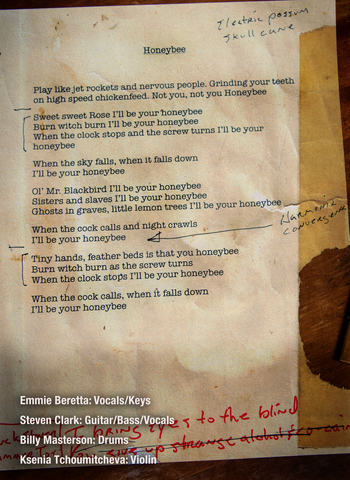 Electric possum
skull cane
Honeybee
Play like jet rockets and nervous people. Grinding your teeth
on high speed chickenfeed. Not you, not you Honeybee
Sweet sweet Rose I'll be your honeybee
Burn witch burn I'll be your honeybee
When the clock stops and the screw turns I'll be your
honeybee
When the sky falls, when it falls down
I'll be your honeybee
Ol' Mr. Blackbird I'll be your honeybee
Sisters and slaves I'll be your honeybee
Ghosts in graves, little lemon trees I'll be your honeybee
Harmonic
convergence
When the cock calls and night crawls
I'll be your honeybee
Tiny hands, feather beds is that you honeybee
Burn witch burn as the screw turns
When the clock stops I'll be your honeybee
When the cock calls, when it falls down
I'll be your honeybee
Emmie Beretta: Vocals/Keys
I bring eyes to the blind
Steven Clark: Guitar/Bass/Vocals
give up strange alcohol &
Billy Masterson: Drums
Ksenia Tchoumitcheva: Violin